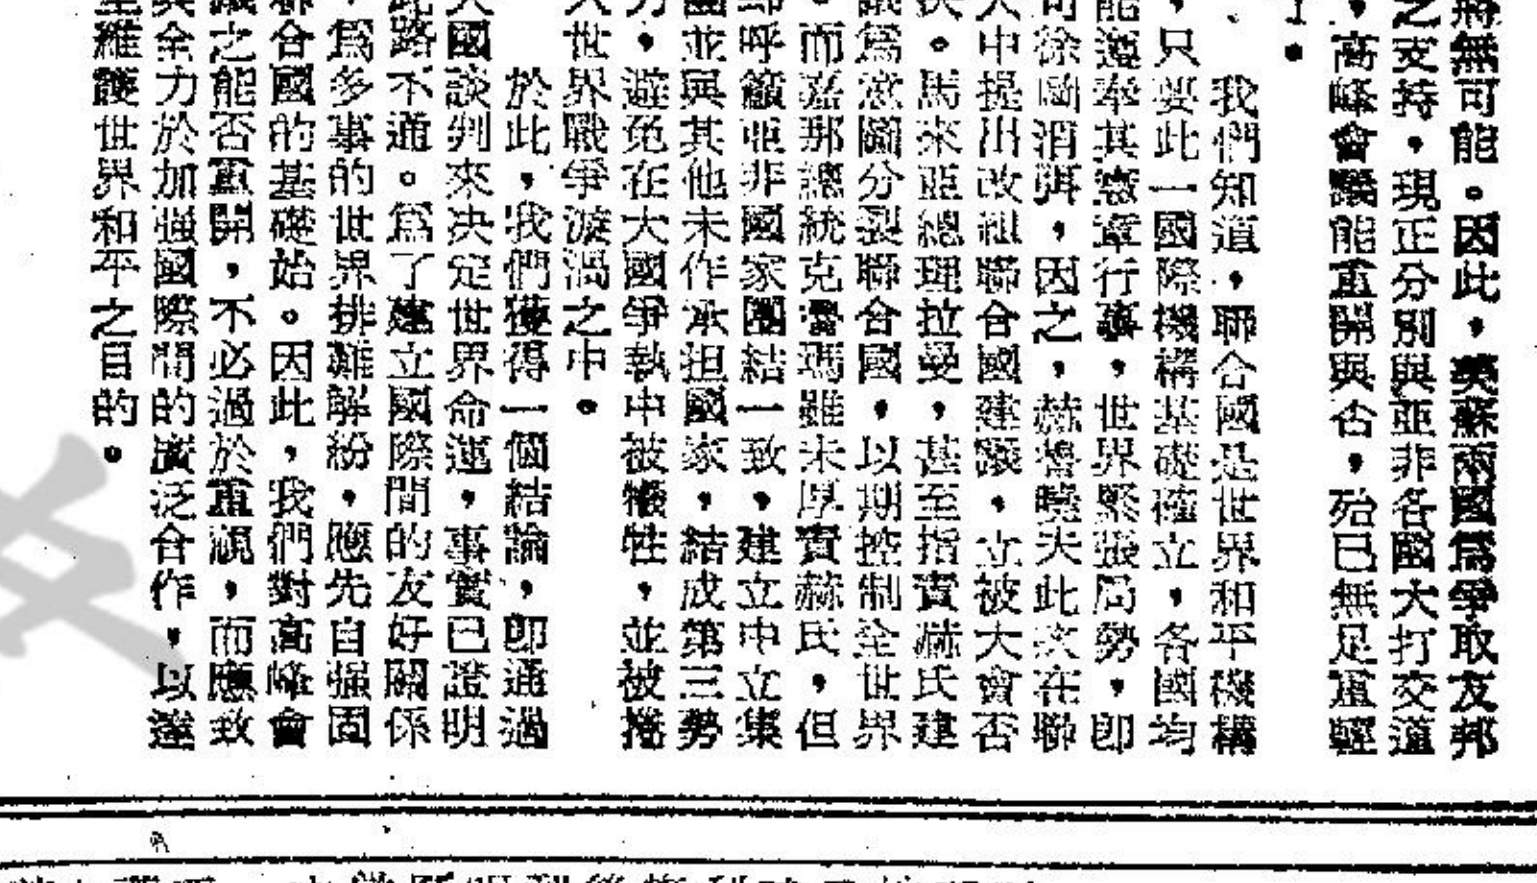 將無可能。因此，英蘇兩國爲爭取友邦
之支持，現正分別與亞非各國大打交道
，高峰會議能重開與否，殆已無足重輕
了。
我們知道，聯合國是世界和平機構
，只要此一國際機構基礎確立，各國均
能遵奉其憲章行事，世界緊張局勢，卽
可徐圖消弭，因之，赫魯曉夫此次在聯
大中提出改組聯合國建議，立被大會否
決。馬來亞總理拉曼，甚至指責赫氏建
議爲意圖分裂聯合國，以期控制全世界
。而嘉那總統克魯瑪雖未厚責赫氏，但
却呼籲亞非國家團結一致，建立中立集
團並與其他未作承担國家，結成第三勢
力，避免在大國爭執中被犧牲，並被捲
入世界戰爭漩渦之中。
於此，我們獲得一個結論，卽通過
大國談判來決定世界命運，事實已證明
此路不通。爲了建立國際間的友好關係
，爲多事的世界排難解紛，應先自强固
聯合國的基礎始。因此，我們對高峰會
議之能否重開，不必過於重視，而應致
其全力於加强國際間的廣泛合作，以達
至維護世界和平之目的。